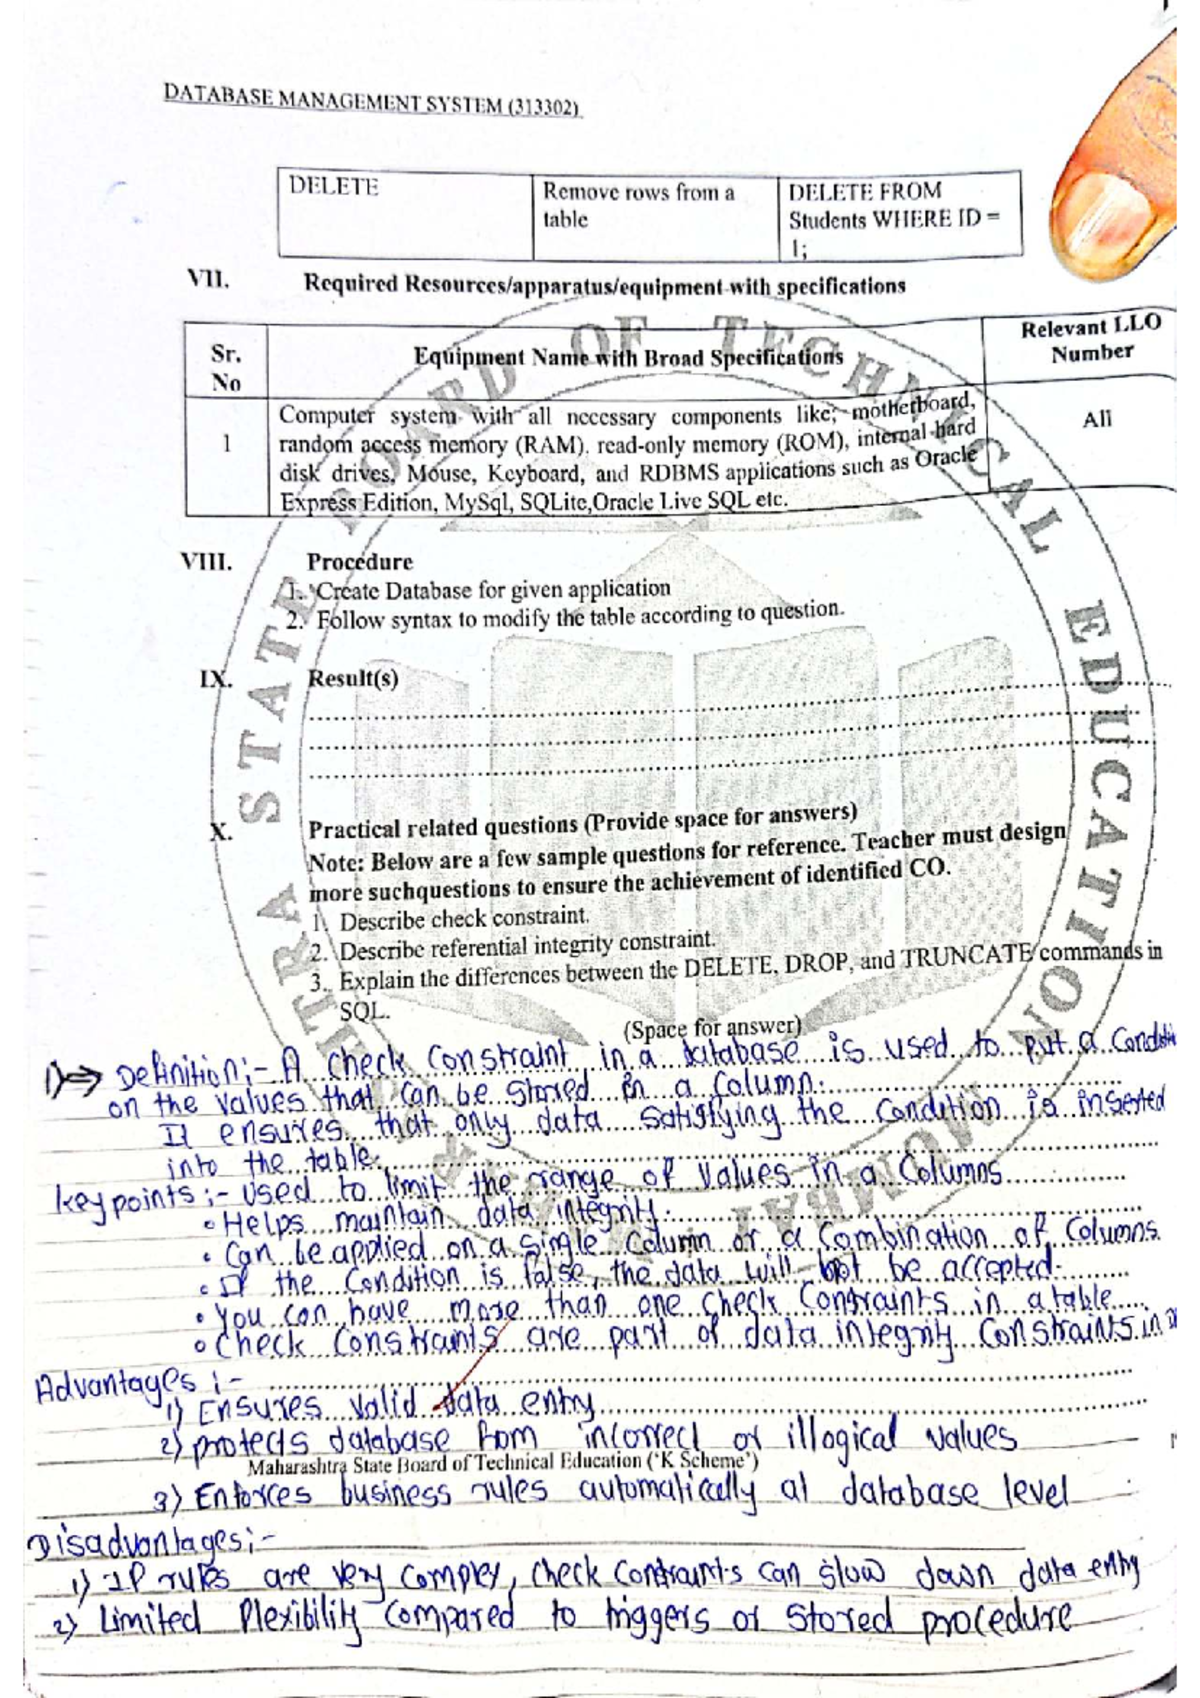 DATABASE MANAGEMENT SYSTEM (313302)
DELETE
Remove rows from a
table
DELETE FROM
Students WHERE ID =
1;
VII. Required Resources/apparatus/equipment with specifications
Sr.
No
Equipment Name with Broad Specifications
Relevant LLO
Number
1
Computer system with all necessary components like; motherboard,
random access memory (RAM), read-only memory (ROM), internal hard
disk drives, Mouse, Keyboard, and RDBMS applications such as Oracle
Express Edition, MySql, SQLite,Oracle Live SQL etc.
All
VIII. Procedure
1. Create Database for given application
2. Follow syntax to modify the table according to question.
IX. Result(s)
X. Practical related questions (Provide space for answers)
Note: Below are a few sample questions for reference. Teacher must design
more suchquestions to ensure the achievement of identified CO.
1. Describe check constraint.
2. Describe referential integrity constraint.
3. Explain the differences between the DELETE, DROP, and TRUNCATE commands in
SQL.
(Space for answer)
1)⇒ Definition:- A check Constraint in a database is used to put a Condition
on the values that can be stored in a column.
It ensures that only data satisfying the condition is inserted
into the table.
key points:- used to limit the range of values in a Columns
• Helps maintain data integrity.
• Can be applied on a single column or a Combination of Columns.
• If the Condition is false, the data will not be accepted.
• You can have more than one check Constraints in a table
• Check Constraints are part of data integrity Constraints in
Advantages :-
1) Ensures valid data entry
2) protects database from incorrect or illogical values
Maharashtra State Board of Technical Education ('K Scheme')
3) Enforces business rules automatically at database level
Disadvantages:-
1) If rules are very complex, check Constraints can slow down data entry
2) Limited flexibility compared to triggers or stored procedure